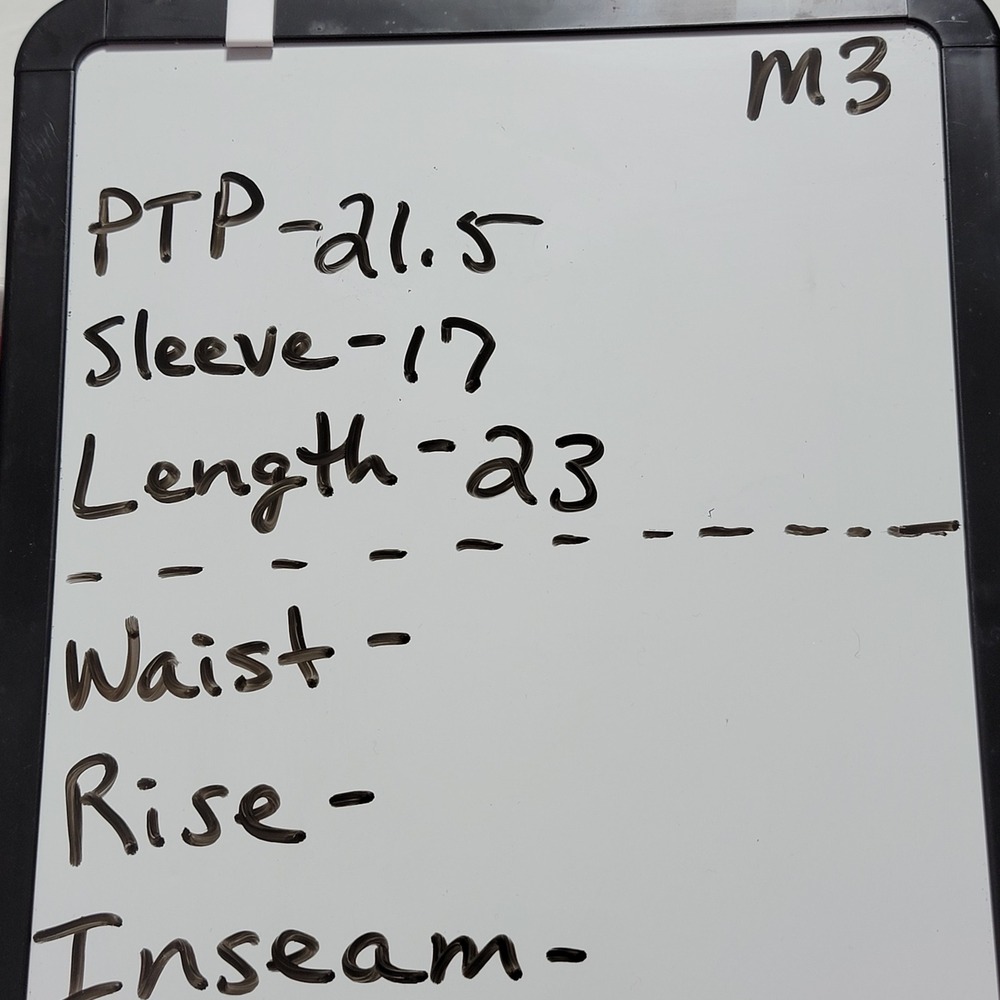 M3
PTP-21.5
Sleeve-17
Length-23
- - - - - - - - - - -
Waist-
Rise-
Inseam-